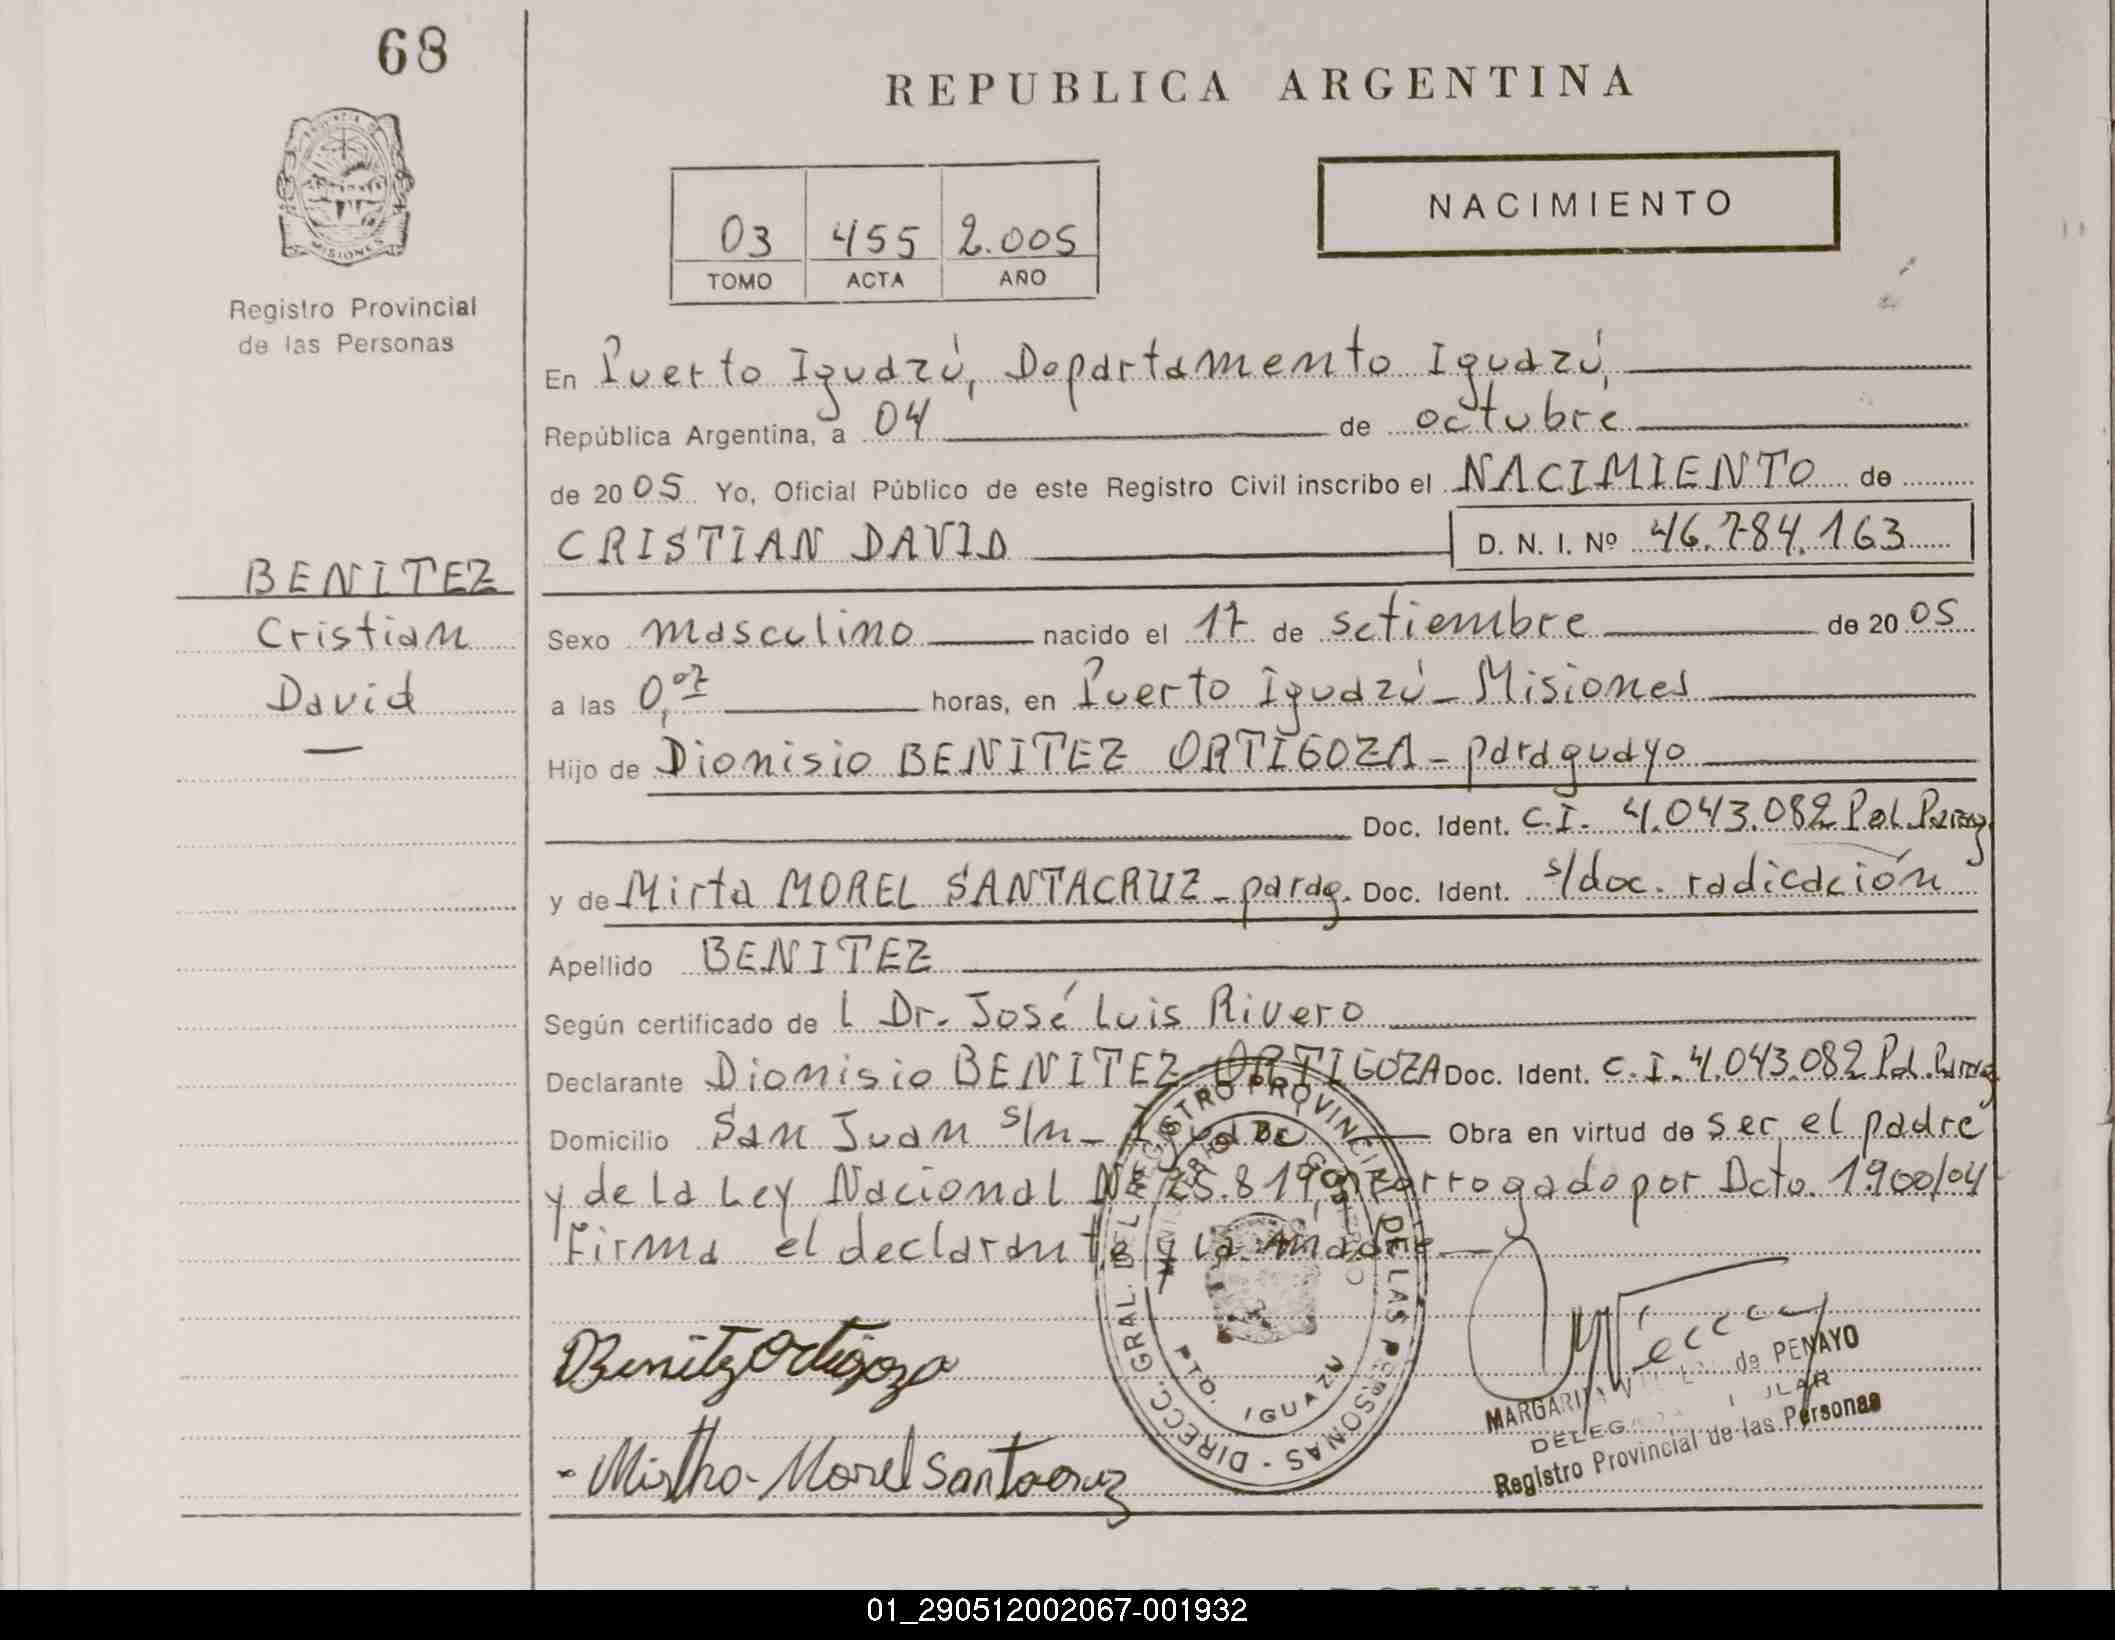 68
REPUBLICA ARGENTINA
PROVINCIA DE MISIONES
Registro Provincial
de las Personas
NACIMIENTO
03 455 2.005
TOMO ACTA AÑO
En Puerto Iguazú, Departamento Iguazú,
República Argentina, a 04 de octubre
de 2005 Yo, Oficial Público de este Registro Civil inscribo el NACIMIENTO de
CRISTIAN DAVID D. N. I. Nº 46.784.163
BENITEZ
Cristian
David
Sexo masculino nacido el 17 de setiembre de 2005
a las 0,07 horas, en Puerto Iguazú - Misiones
Hijo de Dionisio BENITEZ ORTIGOZA - paraguayo
Doc. Ident. C.I. 4.043.082 Pol. Parag.
y de Mirta MOREL SANTACRUZ - parag. Doc. Ident. s/doc. radicación
Apellido BENITEZ
Según certificado de l Dr. José Luis Rivero
Declarante Dionisio BENITEZ ORTIGOZA Doc. Ident. C.I. 4.043.082 Pol. Parag
Domicilio San Juan s/n - Obra en virtud de ser el padre
y de la Ley Nacional Nº 25.819 prorrogado por Dcto. 1900/04
Firma el declarante y la madre
Benitez Ortigoza
- Mirtha - Morel Santacruz
DIRECC. GRAL. DEL REGISTRO PROVINCIAL DE LAS PERSONAS
MINISTERIO DE GOBIERNO
PTO. IGUAZU
de PENAYO
Registro Provincial de las Personas
01_290512002067-001932